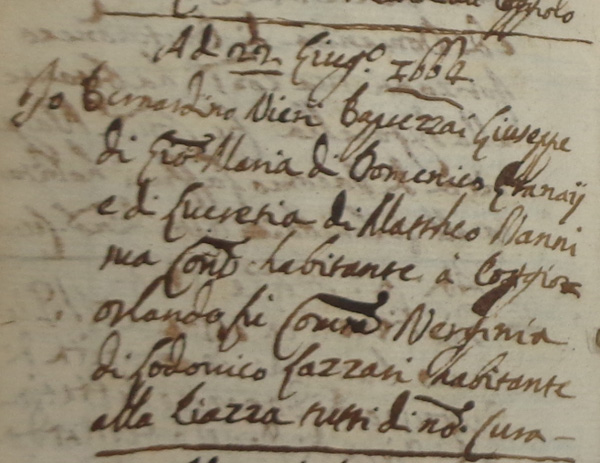 Ad 22 Giug.o 1662
Io Bernardino Nieri Battezzai Giuseppe
di Gio: Maria di Domenico
e di Lucretia di Mattheo Nanni
sua Cons. habitante à Poggio
orlando fù Comre Verginia
di Lodovico Lazzari habitante
alla Piazza tutti di nra Cura